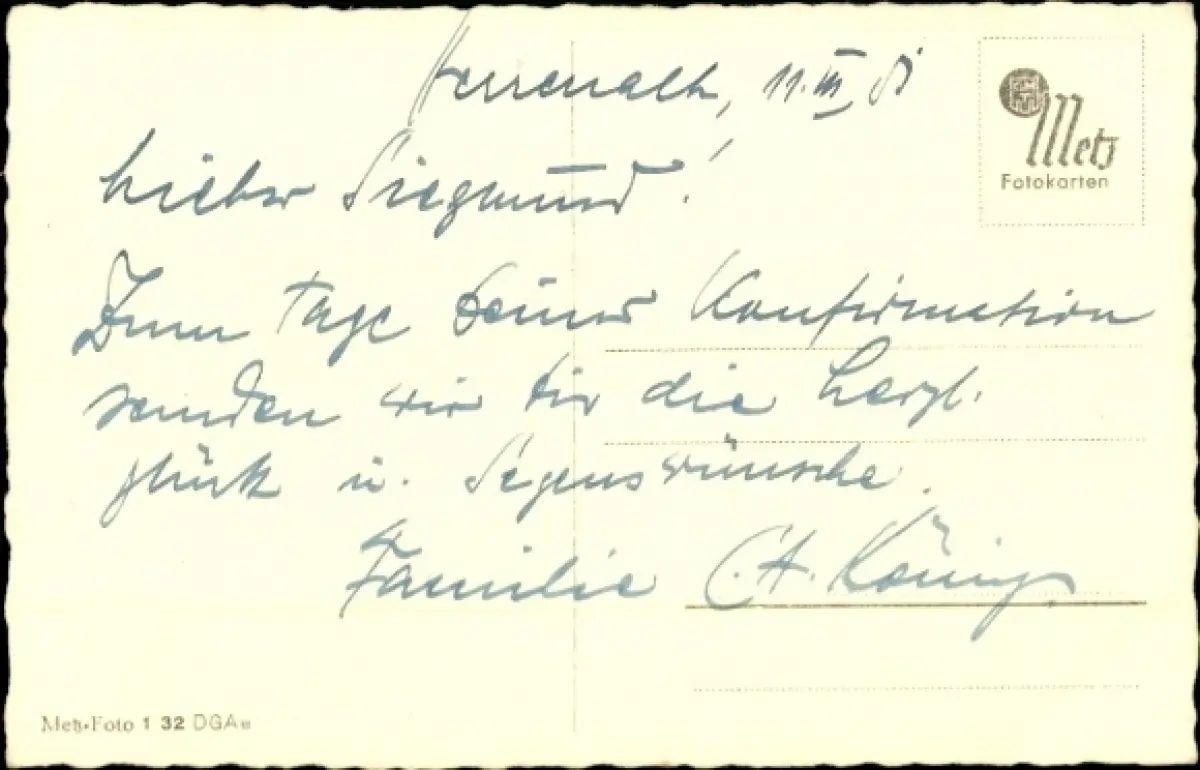 Herrenalb, 11. III.
Metz
Fotokarten
Lieber Siegmund!
Zum Tage Deiner Konfirmation
senden wir Dir die herzl.
Glück u. Segenswünsche.
Familie C. A. König.
Metz-Foto 1 32 DGAa